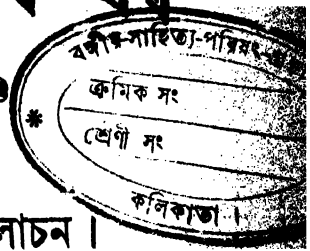 বঙ্গীয়-সাহিত্য-পরিষৎ
ক্রমিক সং
শ্রেণী সং
কলিকাতা ।
লোচন ।